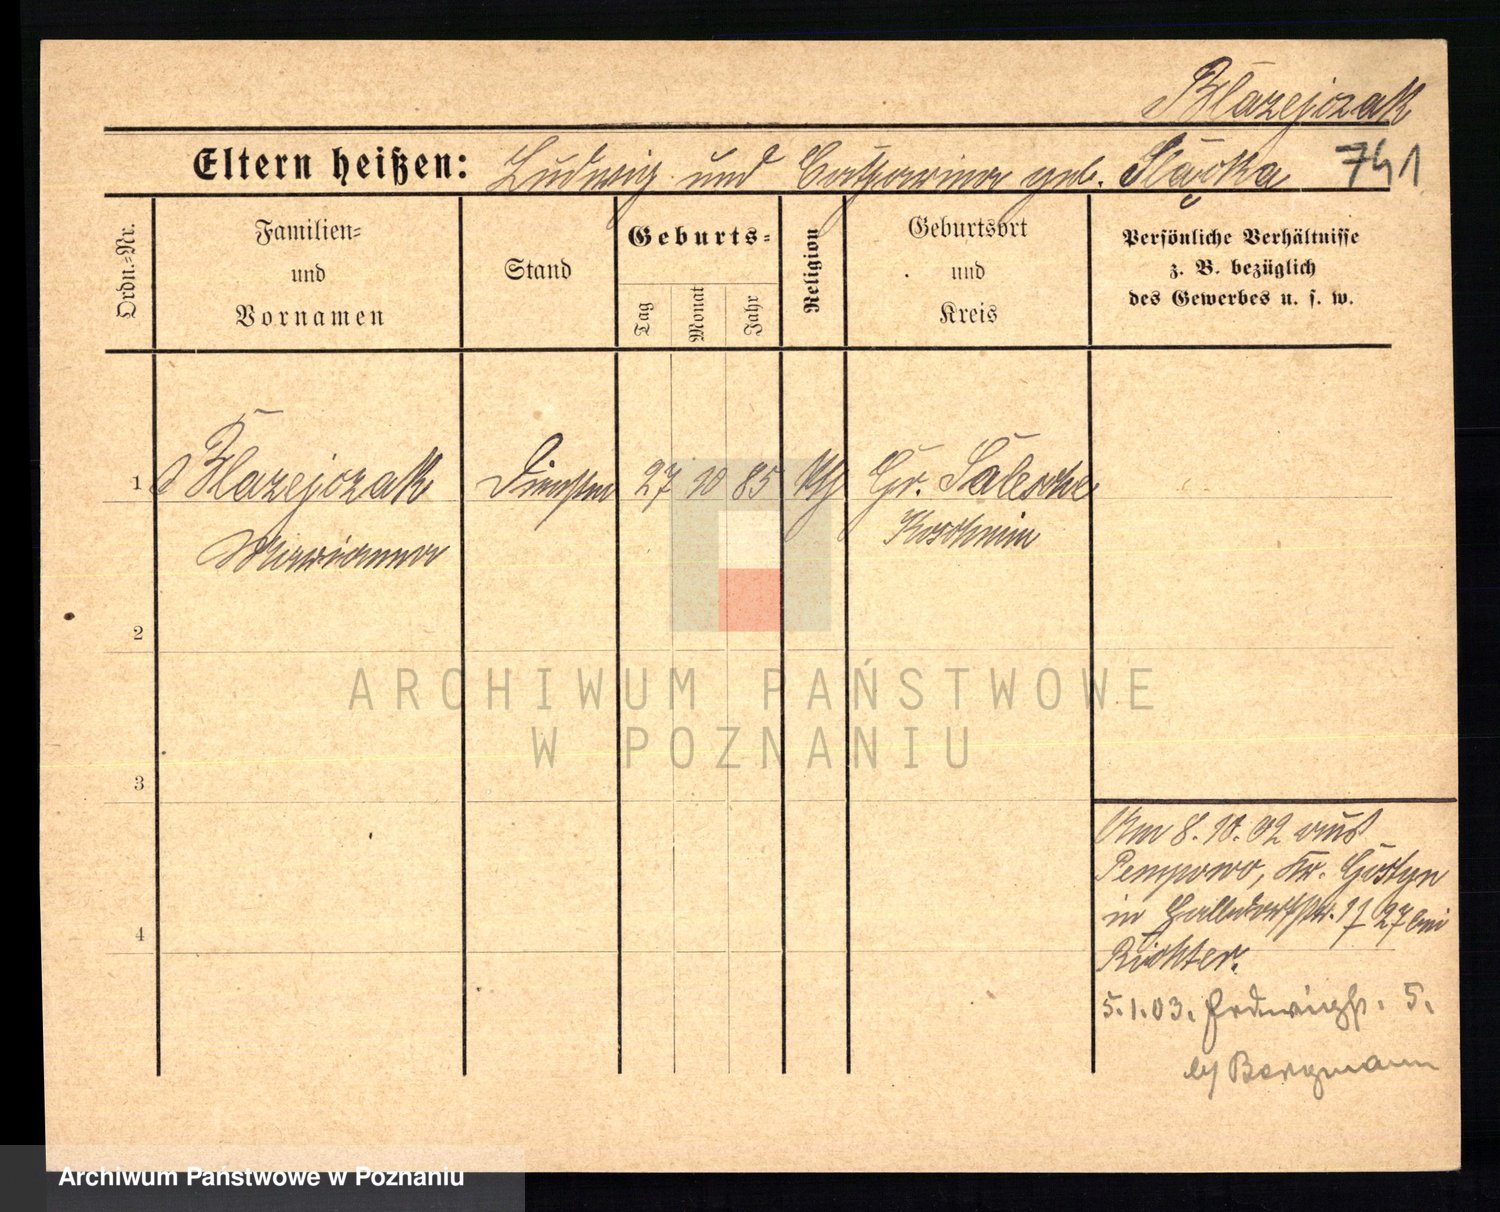 Blazejczak
Eltern heißen: Ludwig und Catharina geb. 741
Ordn.-Nr.
Familien-
und
Vornamen
Stand
Geburts-
Tag
Monat
Jahr
Religion
Geburtsort
und
Kreis
Persönliche Verhältnisse
z. B. bezüglich
des Gewerbes u. s. w.
1 Blazejczak 27 10 85 Gr. Saleschе
Marianna Koschmin
2
3
4
Am 8.10.02 aus
Pempowo, Kr. Gostyn
in 27 bei
Richter.
5.1.03. Hedwigstr. 5.
b/ Bergmann
ARCHIWUM PAŃSTWOWE
W POZNANIU
Archiwum Państwowe w Poznaniu